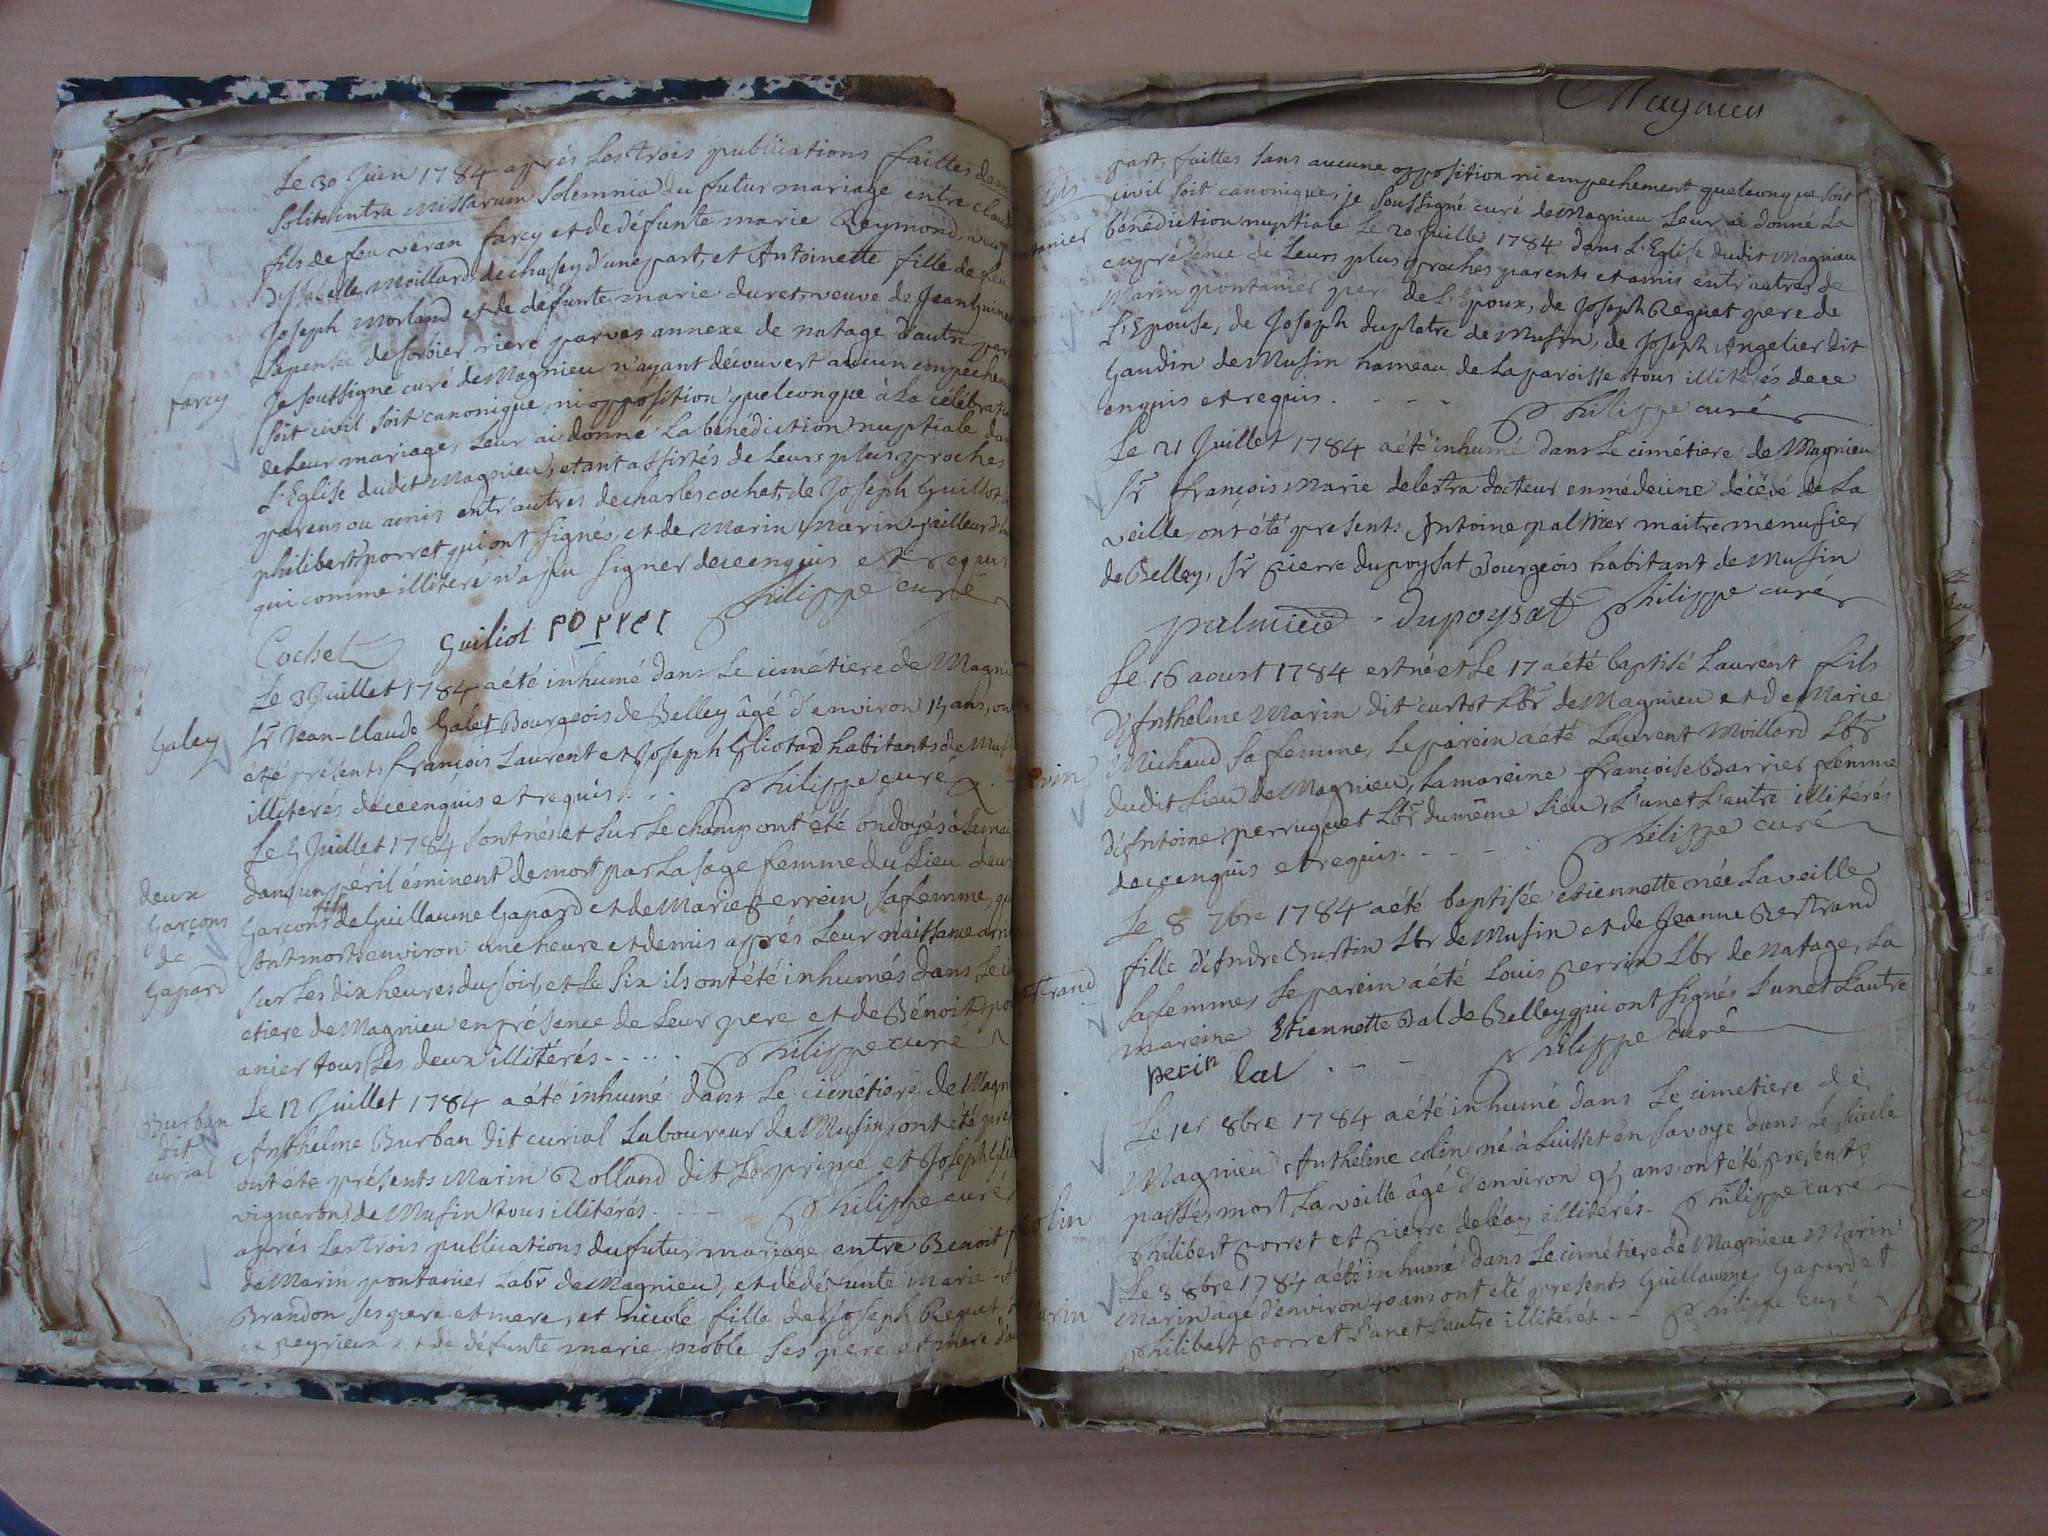 Le 30 Juin 1784 aprés Les trois publications faittes
Solito intra Missarum Solemnia du futur mariage entre
fils de feu veran farcy et de défunte marie Reymond,
Moillard, de chasey d'une part, et Antoinette fille de feu
Joseph Morland et de défunte marie duret, veuve de Jean
riere parves annexe de natage d'autre part
farcy
Je soussigné curé de Magnieu n'ayant découvert aucun
soit civil soit canonique, ni opposition quelconque à La
de Leur mariage, Leur ai donné La bénédiction nuptiale
L'Eglise dudit Magnieu, etant assistés de Leurs plus proches
parens ou amis entr'autres de charles cochet, de Joseph Guillot
philibert porret qui ont signés, et de Marin Marin
qui comme illiteré n'a pu signer de ce enquis et requis
philippe curé
Cochet Guiliot porret
Le 3 Juillet 1784 a été inhumé dans Le cimétiere de
galey
Sr Jean-Claude Galet Bourgeois de Belley âgé d'environ
été présents françois Laurent et Joseph habitants de
illiterés de ce enquis et requis . . . philippe curé
Le 5 Juillet 1784 sont nés et sur Le champ ont été ondoyés
dans un péril éminent de mort par La sage femme du Lieu
deux
Garçons
de
Gapard
Garçons de Guillaume Gapard et de Marie perrein, sa femme,
sont morts environ une heure et demis aprés Leur naissance
sur Les dix heures du soir, et Le six ils ont été inhumés dans Le
etiere de Magnieu en présence de Leur pere et de Bénoit
anier tous Les deux illitérés . . . . . philippe curé
Le 12 Juillet 1784 a été inhumé dans Le cimétiere de
Burban
dit
curial
Anthelme Burban dit curial Laboureur de Musin, ont été
ont été présents Marin Rolland dit Le prince et Joseph
vigneron de Musin tous illitérés. philippe curé
aprés Les trois publications du futur mariage entre Benoit
de Marin pontanier Labr de Magnieu, et de défunte Marie
Brandon ses pere et mere, et nicole fille de Joseph Reguet
et de défunte marie noble ses pere et mere
Magnieu
part, faittes sans aucune opposition ni empechement quelconque soit
civil soit canonique, je soussigné curé de Magnieu Leur ai donné La
bénédiction nuptiale Le 20 Juillet 1784 dans L'Eglise dudit Magnieu
en présence de Leurs plus proches parents et amis entr'autres de
Marin pontanier pere de L'Epoux, de Joseph Reguet pere de
L'Epouse, de Joseph duplatre de Musin, de Joseph Angelier dit
Gaudin de Musin hameau de La paroisse tous illitérés de ce
enquis et requis . . . . philippe curé
Le 21 Juillet 1784 a été inhumé dans Le cimétiere de Magnieu
Sr françois Marie delestra docteur en médecine décédé de La
veille, ont été présents Antoine palmier maitre menusier
de Belley, Sr pierre dupoysat Bourgeois habitant de Musin
palmier dupoysat philippe curé
Le 16 aoust 1784 est né et Le 17 a été baptisé Laurent fils
d'Anthelme Marin dit curtet Lbr de Magnieu et de Marie
Michaud sa femme, Le parein a été Laurent Moillard Lbr
dudit Lieu de Magnieu, La mareine françoise Barrier femme
d'Antoine perruquet Lbr du même Lieu, L'un et L'autre illitérés
de ce enquis et requis. . . . . philippe curé
Le 8 7bre 1784 a été baptisée etiennette née La veille
fille d'Andre Burtin Lbr de Musin et de Jeanne Bertrand
sa femme, Le parein a été Louis perrin Lbr de natage, La
mareine Etiennette Bal de Belley qui ont signés L'un et L'autre
perin bal . - - philippe curé
Le 1er 8bre 1784 a été inhumé dans Le cimetiere de
Magnieu Anthelme colin né à Luisset en Savoye dans Le siecle
passé, mort La veille âgé d'environ 95 ans ont été présents
colin
philibert porret et pierre illitérés. philippe curé
Le 3 8bre 1784 a été inhumé dans Le cimétiere de Magnieu Marin
Marin agé d'environ 40 ans ont été présents Guillaume Gapard et
philibert porret L'un et L'autre illitérés. - - philippe curé